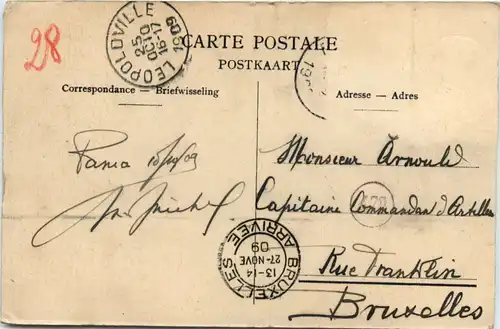 28
LEOPOLDVILLE
25
OCTO
16-17
1909
CARTE POSTALE
POSTKAART
Correspondance — Briefwisseling
Adresse — Adres
Monsieur Arnould
Capitaine Commandan d'Artillerie
Rue Franklin
Bruxelles
BRUXELLES
13-14
27-NOVE
09
ARRIVÉE